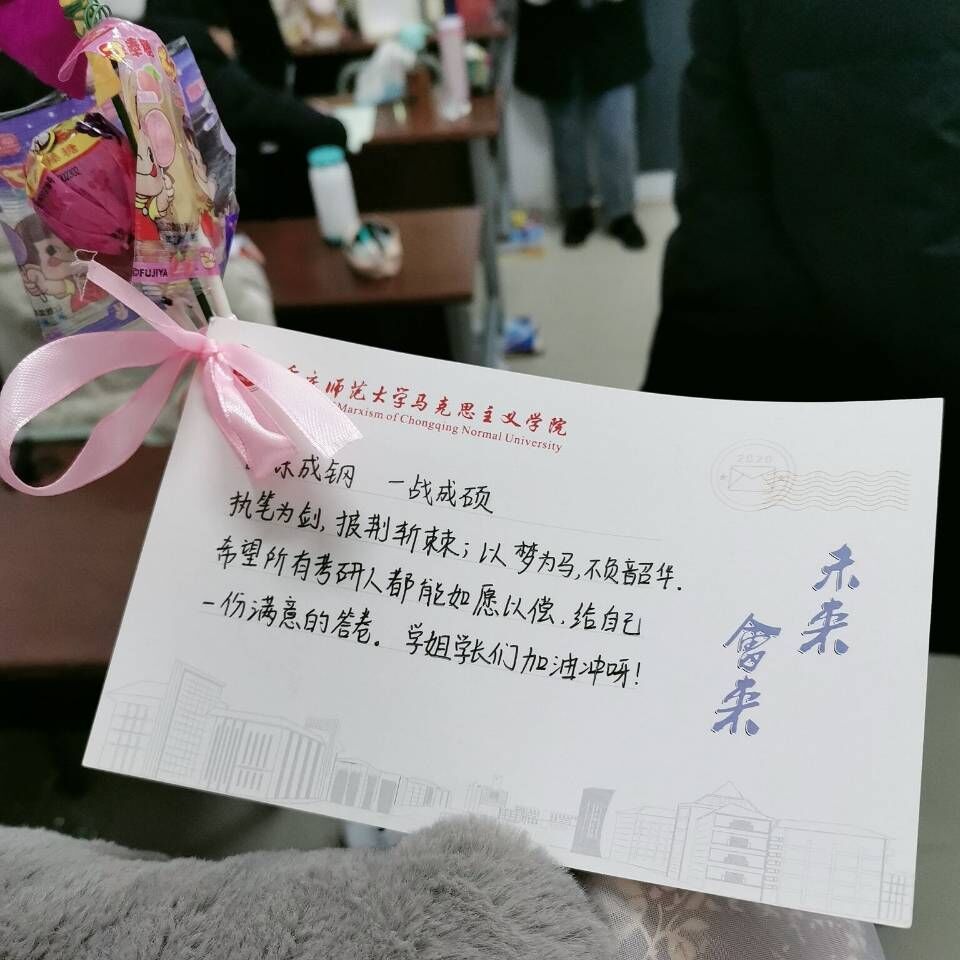 FUJIYA
庆师范大学马克思主义学院
Marxism of Chongqing Normal University
2020
成钢 一战成硕
执笔为剑，披荆斩棘；以梦为马，不负韶华.
希望所有考研人都能如愿以偿，给自己
一份满意的答卷。学姐学长们加油冲呀！
未来
會来